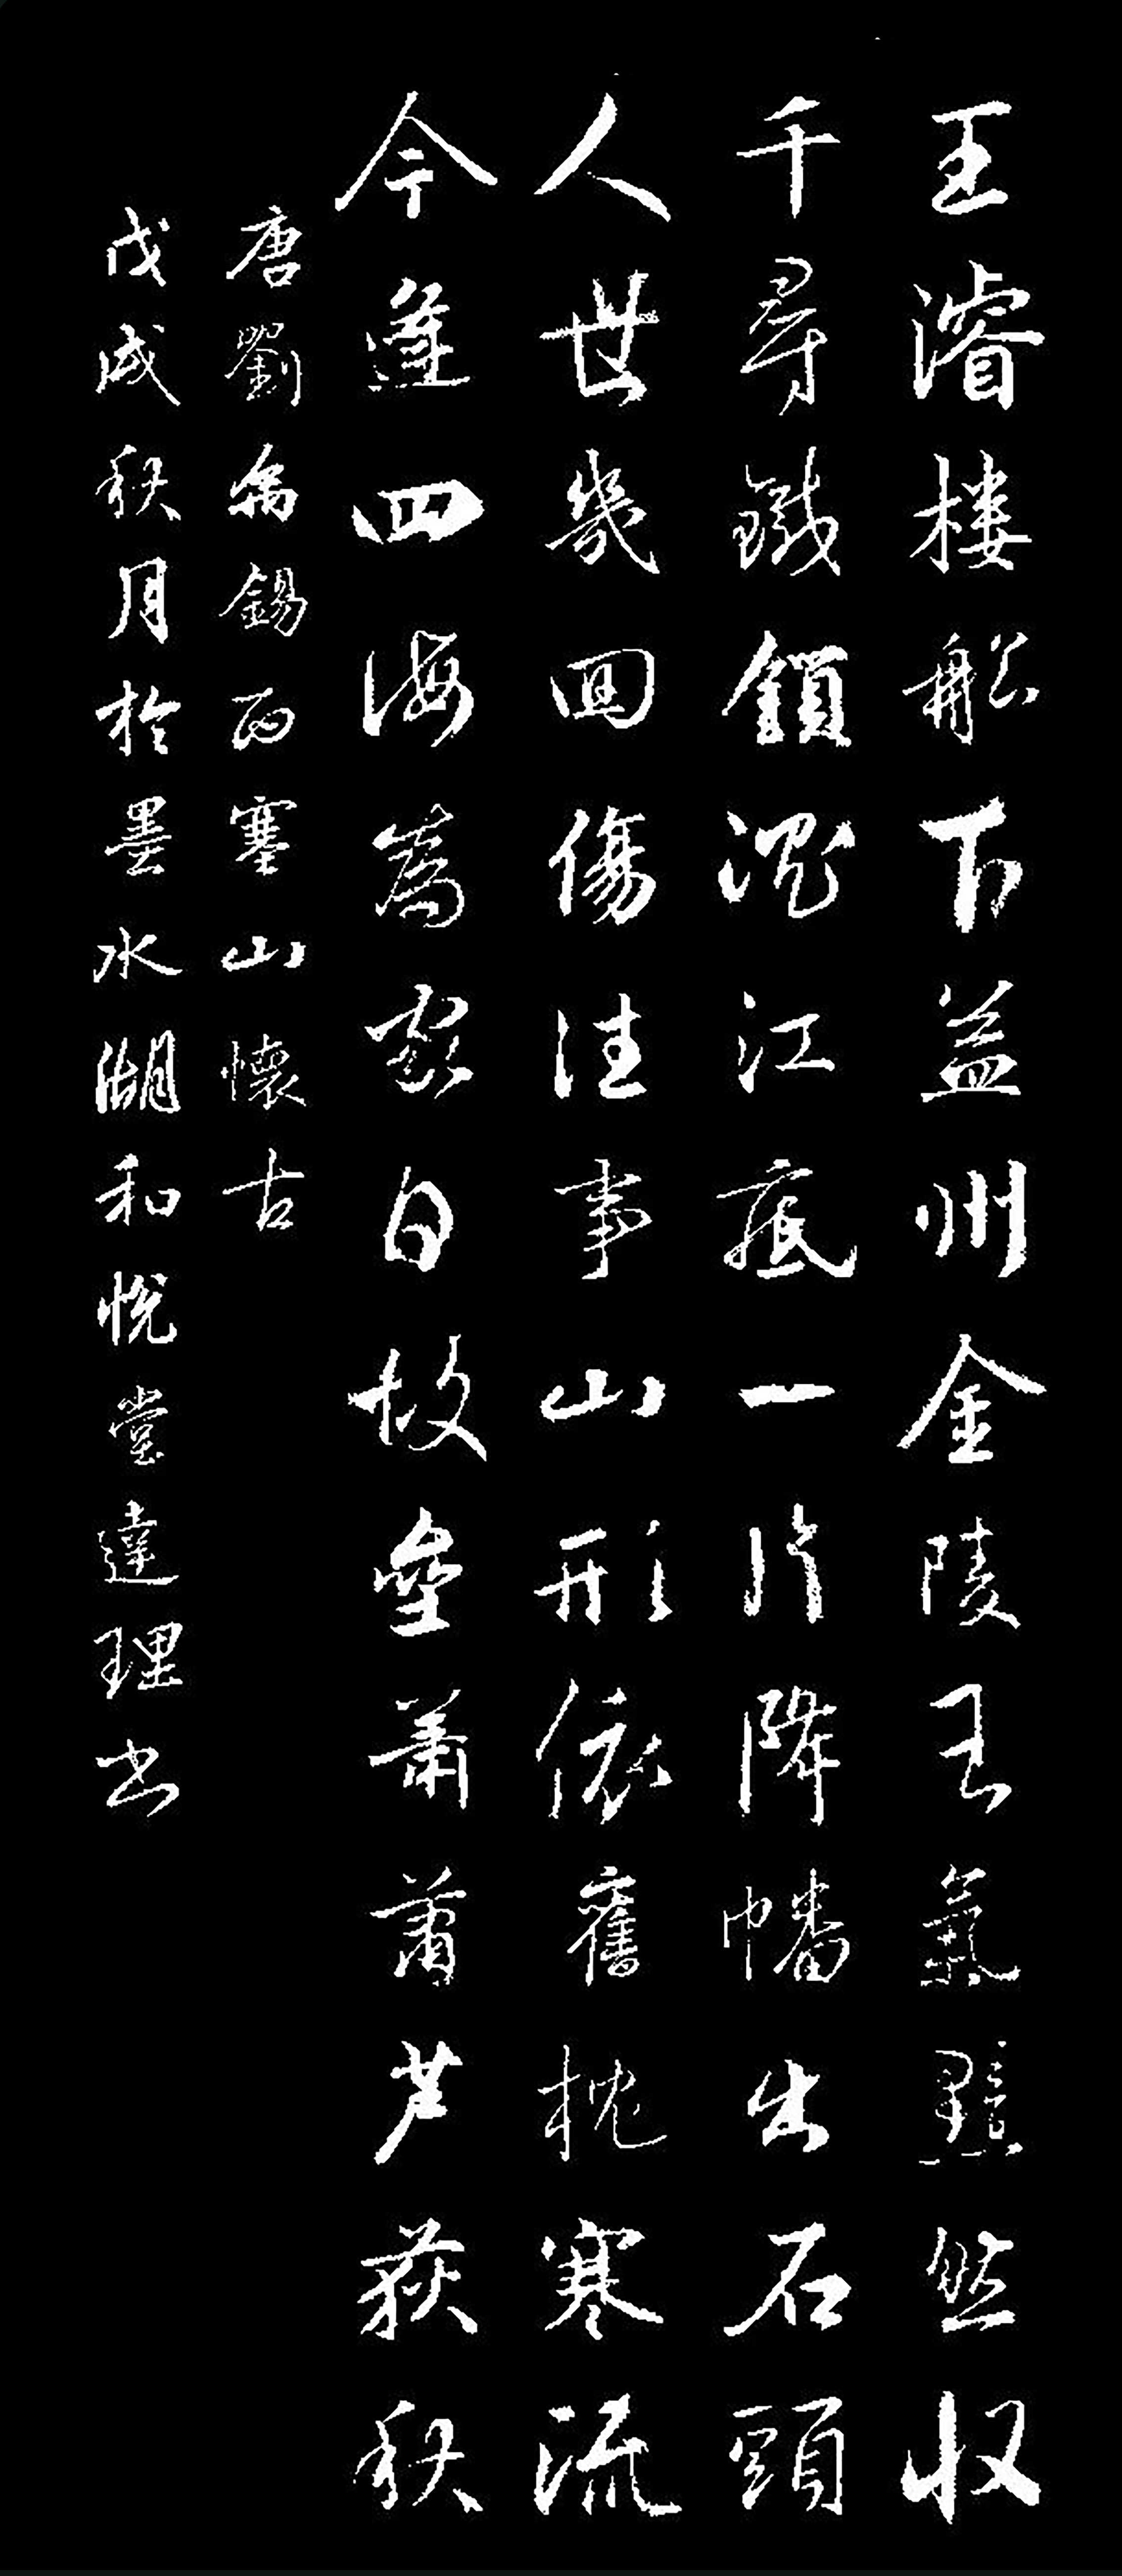 王濬楼船下益州金陵王氣黯然收
千尋鐵鎖沉江底一片降幡出石頭
人世幾回傷往事山形依舊枕寒流
今逢四海為家日故壘萧蕭芦荻秋
唐劉禹錫西塞山懷古
戊戌秋月於墨水湖和悦堂達理书